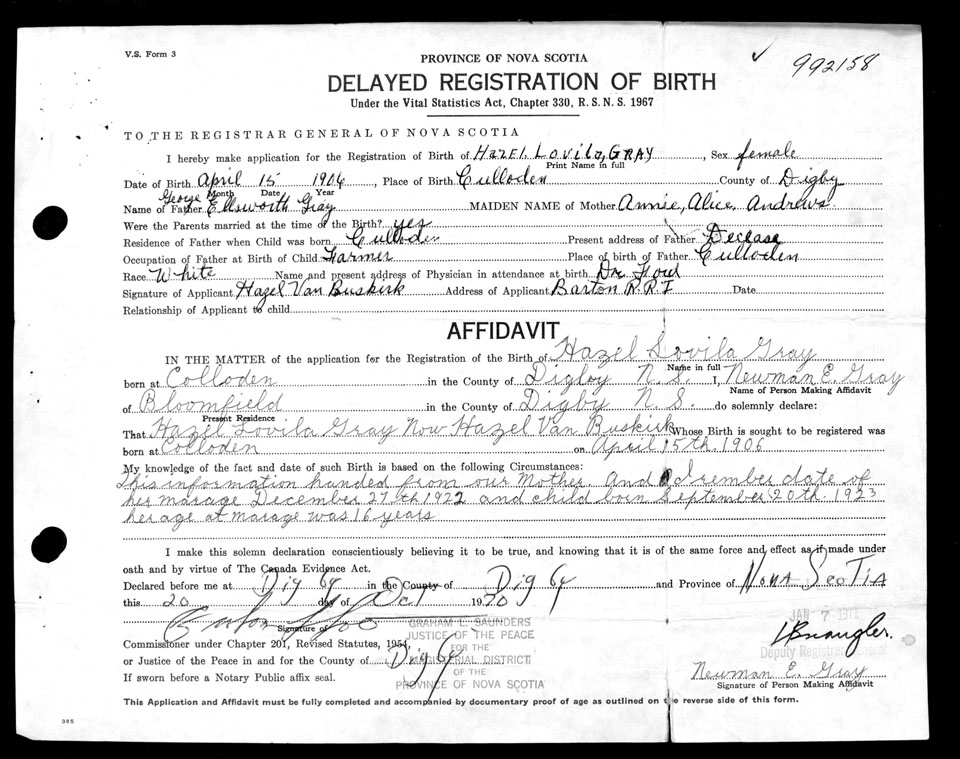 V.S. Form 3
✓ 992158
PROVINCE OF NOVA SCOTIA
DELAYED REGISTRATION OF BIRTH
Under the Vital Statistics Act, Chapter 330, R. S. N. S. 1967
TO THE REGISTRAR GENERAL OF NOVA SCOTIA
I hereby make application for the Registration of Birth of HAZEL Lovila, GRAY, Sex female
Print Name in full
Date of Birth April 15 1906, Place of Birth Culloden County of Digby
Month Date Year
George
Name of Father Ellsworth Gray MAIDEN NAME of Mother Annie, Alice Andrews
Were the Parents married at the time of the Birth? yes
Residence of Father when Child was born Culloden Present address of Father Decease
Occupation of Father at Birth of Child Farmer Place of birth of Father Culloden
Race White Name and present address of Physician in attendance at birth Dr.
Signature of Applicant Hazel Van Buskirk Address of Applicant Barton R.R.I Date
Relationship of Applicant to child
AFFIDAVIT
IN THE MATTER of the application for the Registration of the Birth of Hazel Lovila Gray
Name in full
born at Colloden in the County of Digby N.S. I, Newman E. Gray
Name of Person Making Affidavit
of Bloomfield in the County of Digby N.S. do solemnly declare:
Present Residence
That Hazel Lovila Gray Now Hazel Van Buskirk Whose Birth is sought to be registered was
born at Colloden on April 15th 1906
My knowledge of the fact and date of such Birth is based on the following Circumstances:
This information handed from our Mother. And I rember date of
her marage December 27th 1922 and child born September 20th 1923
her age at marage was 16 years
I make this solemn declaration conscientiously believing it to be true, and knowing that it is of the same force and effect as if made under
oath and by virtue of The Canada Evidence Act.
Declared before me at Digby in the County of Digby and Province of NOVA SCOTIA
this 20 day of Oct 1970
JAN 7 1971
Signature of
GRAHAM L. SAUNDERS
JUSTICE OF THE PEACE
FOR THE
MAGISTERIAL DISTRICT
OF THE
PROVINCE OF NOVA SCOTIA
Deputy Registrar General
Commissioner under Chapter 201, Revised Statutes, 1954,
or Justice of the Peace in and for the County of Digby
If sworn before a Notary Public affix seal.
Newman E. Gray
Signature of Person Making Affidavit
This Application and Affidavit must be fully completed and accompanied by documentary proof of age as outlined on the reverse side of this form.
385